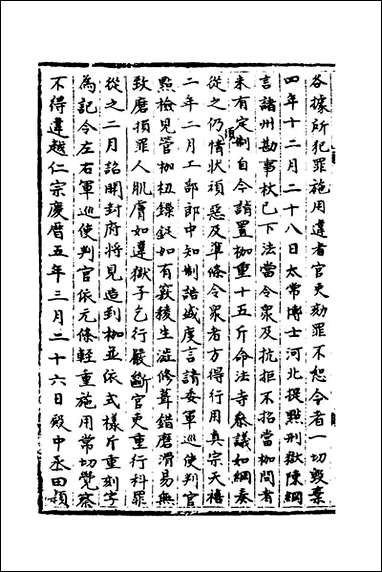 各據所犯罪施用違者官吏劾罪不恕令者一切毀棄
四年十二月二十八日太常博士河北提點刑獄陳綱
言諸州勘事杖已下法當令眾及抗拒不招當枷問者
未有定制自今請置枷重十五斤命法寺參議如綱奏
從之仍情狀頑惡及準條令眾者方得行用真宗天禧
二年二月工部郎中知制誥盛度言請委軍巡使判官
點檢見管枷杻鏁釱如有竅稜生澁修葺錯磨滑易無
致磨損罪人肌膚如違獄子乞行嚴斷官吏重行科罪
從之二月詔開封府將見造到枷並依式樣斤重刻字
為記令左右軍巡使判官依元條輕重施用常切覺察
不得違越仁宗慶曆五年三月二十六日殿中丞田頴